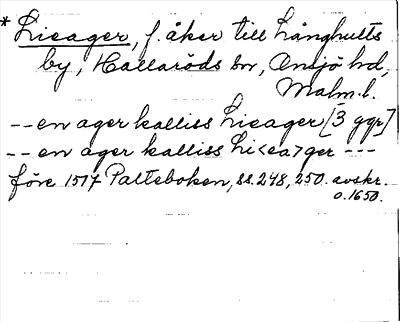 * Lieager, f. åker till Långhults
by, Hallaröds sn, Onsjö hd,
Malm. l.
-- en ager kalliss Lieager [3 ggr]
-- en ager kalliss Li<ea>ger ---
före 1517 Palteboken, ss. 248, 250. avskr.
o. 1650.